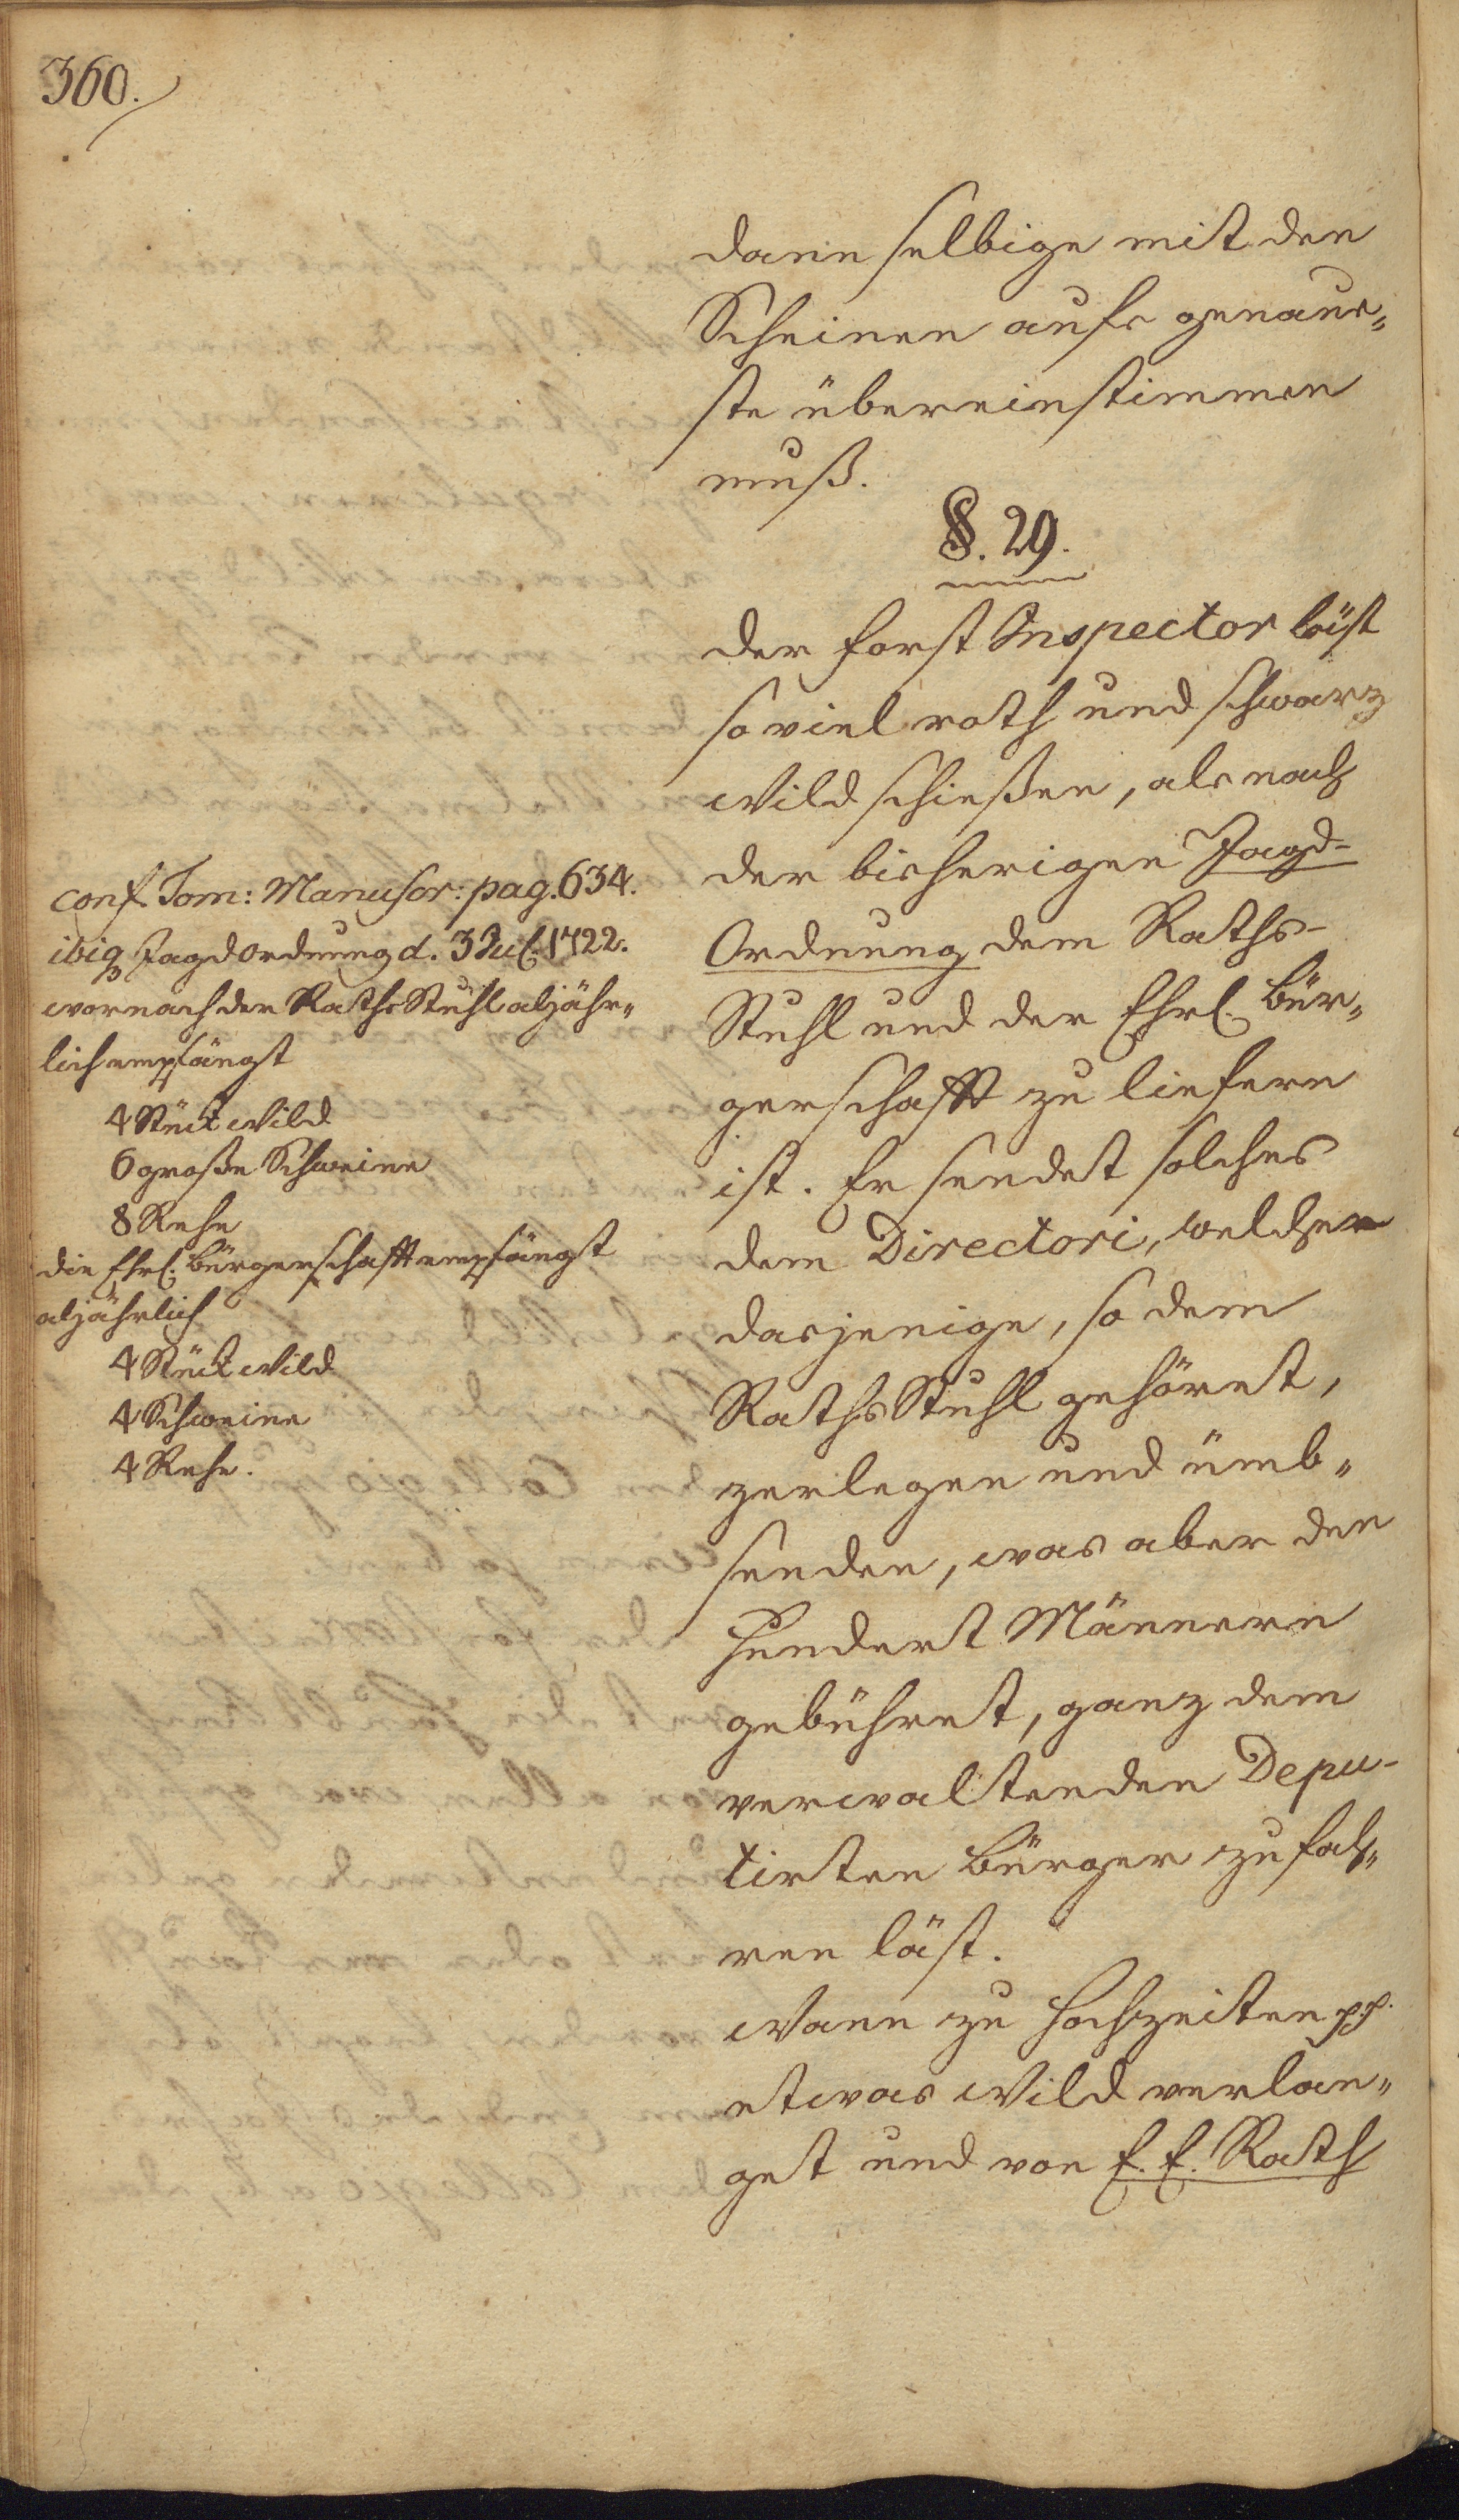 360.
dann selbige mit den
Scheinen aufs genaue„
ste übereinstimmen
muß.
§. 29.
Der Forst Inspector läst
so viel roth und schwarz
Wild schießen, als nach
der bisherigen Jagd-
Ordnung dem Raths-
Stuhl und der Ehrl. Bür„
gerschafft zu liefern
ist. Er sendet solches
dem Directori, welcher
dasjenige, so dem
RathsStuhl gehöret,
zerlegen und umb„
senden, was aber den
Hundert Männern
gebühret, ganz dem
verwaltenden Depu-
tirten Bürger zufah„
ren läst.
Wann zu Hochzeiten pp.
etwas Wild verlan„
get und von E. E. Rath
conf. Tom: Manuscr: pag. 634.
Jagdordnung d. 3 Jul. 1722.
wornach der RathsStuhl aljähr„
lich empfängt
4 Stück Wild
6 große Schweine
8 Rehe
die Ehrl. Bürgerschafft empfängt
aljährlich
4 Stück Wild
4 Schweine
4 Rehe.